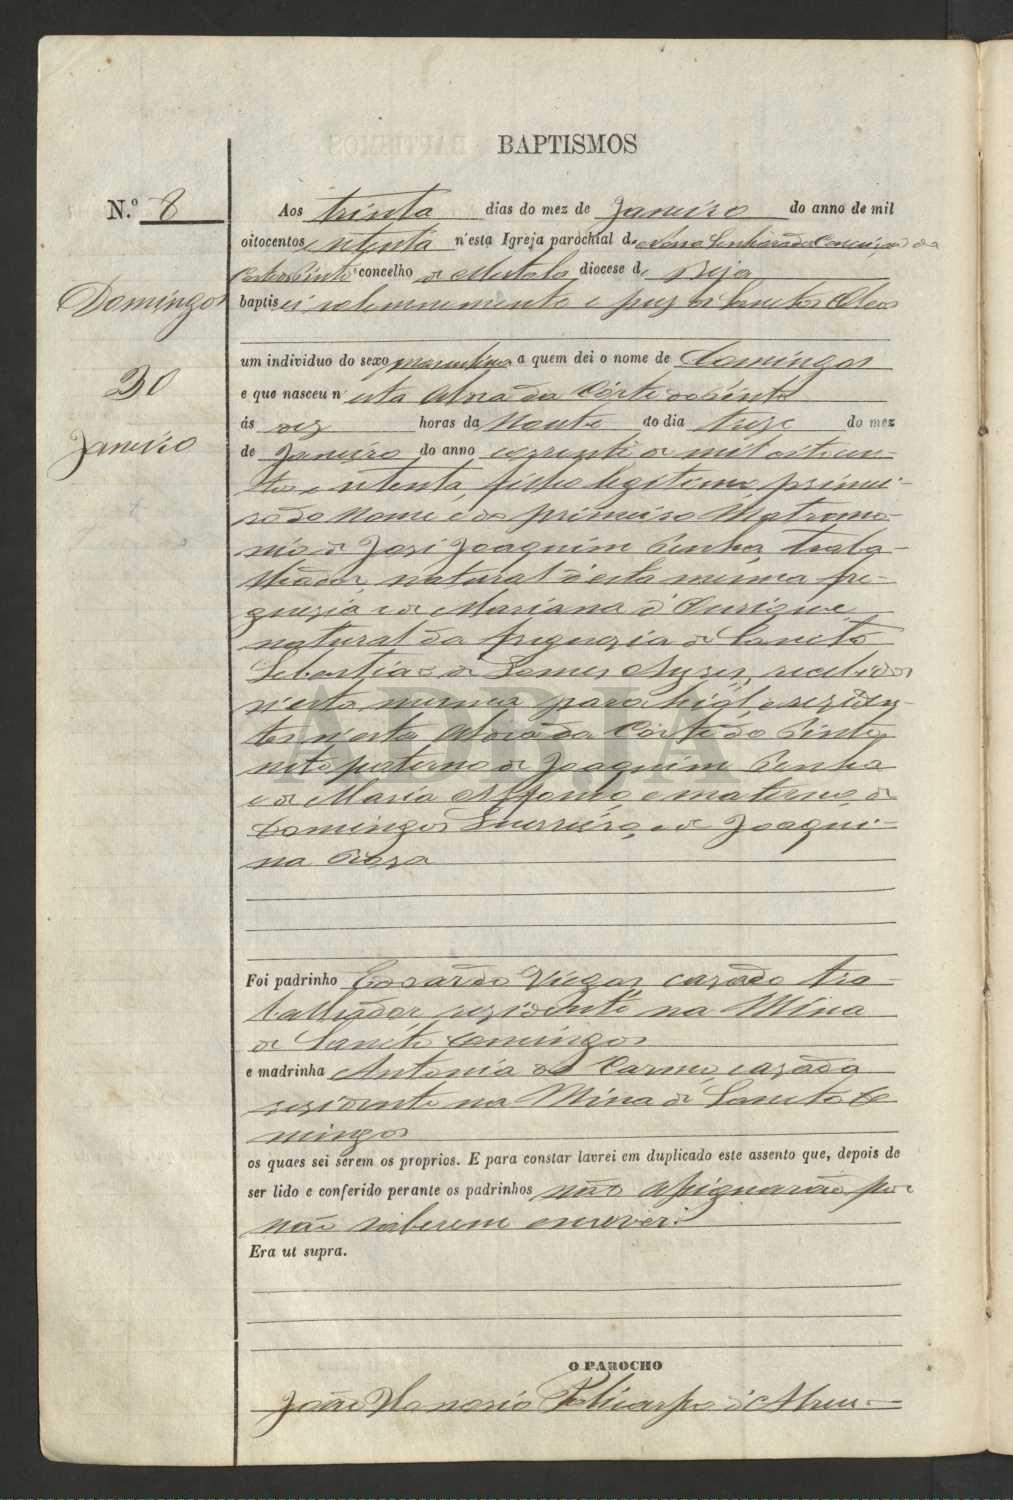 BAPTISMOS
N.º 8
Domingos
30
Janeiro
Aos trinta dias do mez de Janeiro do anno de mil
oitocentos e oitenta n'esta Igreja parochial de Nossa Senhora da Conceição da
Corte do Pinto concelho de Mertola diocese de Beja
baptisei solemnemente e puz os Sanctos Oleos
um individuo do sexo masculino a quem dei o nome de Domingos
e que nasceu n'esta Aldea da Côrte do Pinto
ás dez horas da Noute do dia treze do mez
de Janeiro do anno corrente de mil oitocen-
tos e oitenta, filho legitimo, primei-
ro do Nome e do primeiro Matrimo-
nio de José Joaquim Penha, traba-
lhador, natural d'esta mesma fre-
guezia e de Mariana d'Ourique
natural da freguezia de Sancto
Sebastião de Gomes Ayres, recebidos
n'esta mesma parochia, e reziden-
tes n'esta Aldea da Côrte do Pinto,
neto paterno de Joaquim Penha
e de Maria Affonso, e materno, de
Domingos Guerreiro, e de Joaqui-
na Roza
Foi padrinho Eduardo Viegas, cazado tra-
balhador, rezidente na Mina
de Sancto Domingos
e madrinha Antonia do Carmo, cazada
rezidente na Mina de Sancto Do
mingos
os quaes sei serem os proprios. E para constar lavrei em duplicado este assento que, depois de
ser lido e conferido perante os padrinhos não assignarão por
não saberem escrever.
Era ut supra.
O PAROCHO
João Honorio Policarpo d'Abreu
ADBJA